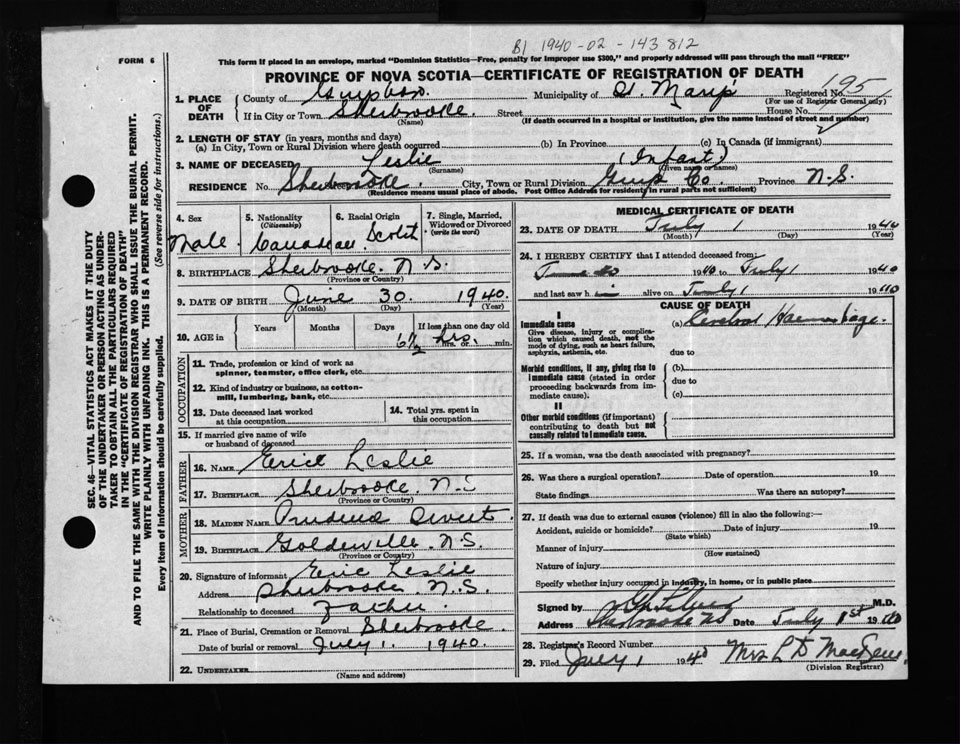 B1 1940-02-143812
FORM 6
This form if placed in an envelope, marked "Dominion Statistics—Free, penalty for improper use $300," and properly addressed will pass through the mail "FREE"
PROVINCE OF NOVA SCOTIA—CERTIFICATE OF REGISTRATION OF DEATH
1. PLACE OF DEATH
County of Guysboro. Municipality of St. Marys Registered No. 195
(For use of Registrar General only)
If in City or Town Sherbrooke. Street House No.
(Name) (If death occurred in a hospital or institution, give the name instead of street and number)
2. LENGTH OF STAY (in years, months and days)
(a) In City, Town or Rural Division where death occurred (b) In Province (c) In Canada (if immigrant)
3. NAME OF DECEASED Leslie (Infant)
(Surname) (Given name or names)
RESIDENCE No. Sherbrooke. City, Town or Rural Division Guys Co. Province N.S.
(Residence means usual place of abode. Post Office Address for residents in rural parts not sufficient)
4. Sex
Male.
5. Nationality
(Citizenship)
Canadian
6. Racial Origin
Scotch
7. Single, Married, Widowed or Divorced
(write the word)
8. BIRTHPLACE Sherbrooke. N.S.
(Province or Country)
9. DATE OF BIRTH June 30 1940.
(Month) (Day) (Year)
10. AGE in Years Months Days If less than one day old
6½ hrs. or min.
OCCUPATION
11. Trade, profession or kind of work as
spinner, teamster, office clerk, etc.
12. Kind of industry or business, as cotton-
mill, lumbering, bank, etc.
13. Date deceased last worked
at this occupation
14. Total yrs. spent in
this occupation
15. If married give name of wife
or husband of deceased
FATHER
16. NAME Eric Leslie
17. BIRTHPLACE Sherbrooke. N.S
(Province or Country)
MOTHER
18. MAIDEN NAME
19. BIRTHPLACE Goldenville. N.S.
(Province or Country)
20. Signature of informant Eric Leslie
Address Sherbrooke N.S.
Relationship to deceased Father.
21. Place of Burial, Cremation or Removal Sherbrooke.
Date of burial or removal July 1. 1940.
22. UNDERTAKER
(Name and address)
MEDICAL CERTIFICATE OF DEATH
23. DATE OF DEATH July 1 1940
(Month) (Day) (Year)
24. I HEREBY CERTIFY that I attended deceased from:
June 30 1940 to July 1 1940
and last saw him alive on July 1 1940
CAUSE OF DEATH
I
Immediate cause
Give disease, injury or complica-
tion which caused death, not the
mode of dying, such as heart failure,
asphyxia, asthenia, etc.
(a) Cerebral Haemorrhage.
due to
Morbid conditions, if any, giving rise to
immediate cause (stated in order
proceeding backwards from im-
mediate cause).
(b)
due to
(c)
II
Other morbid conditions (if important)
contributing to death but not
causally related to immediate cause.
25. If a woman, was the death associated with pregnancy?
26. Was there a surgical operation? Date of operation 19
State findings Was there an autopsy?
27. If death was due to external causes (violence) fill in also the following:—
Accident, suicide or homicide? Date of injury 19
(State which)
Manner of injury
(How sustained)
Nature of injury
Specify whether injury occurred in industry, in home, or in public place
Signed by M.D.
Address Sherbrooke NS Date July 1st 1940
28. Registrar's Record Number
29. Filed July 1 1940 Mrs L D
(Division Registrar)
SEC. 46—VITAL STATISTICS ACT MAKES IT THE DUTY
OF THE UNDERTAKER OR PERSON ACTING AS UNDER-
TAKER TO OBTAIN ALL THE PARTICULARS REQUIRED
IN THE "CERTIFICATE OF REGISTRATION OF DEATH"
AND TO FILE THE SAME WITH THE DIVISION REGISTRAR WHO SHALL ISSUE THE BURIAL PERMIT.
WRITE PLAINLY WITH UNFADING INK. THIS IS A PERMANENT RECORD.
Every item of Information should be carefully supplied. (See reverse side for instructions.)